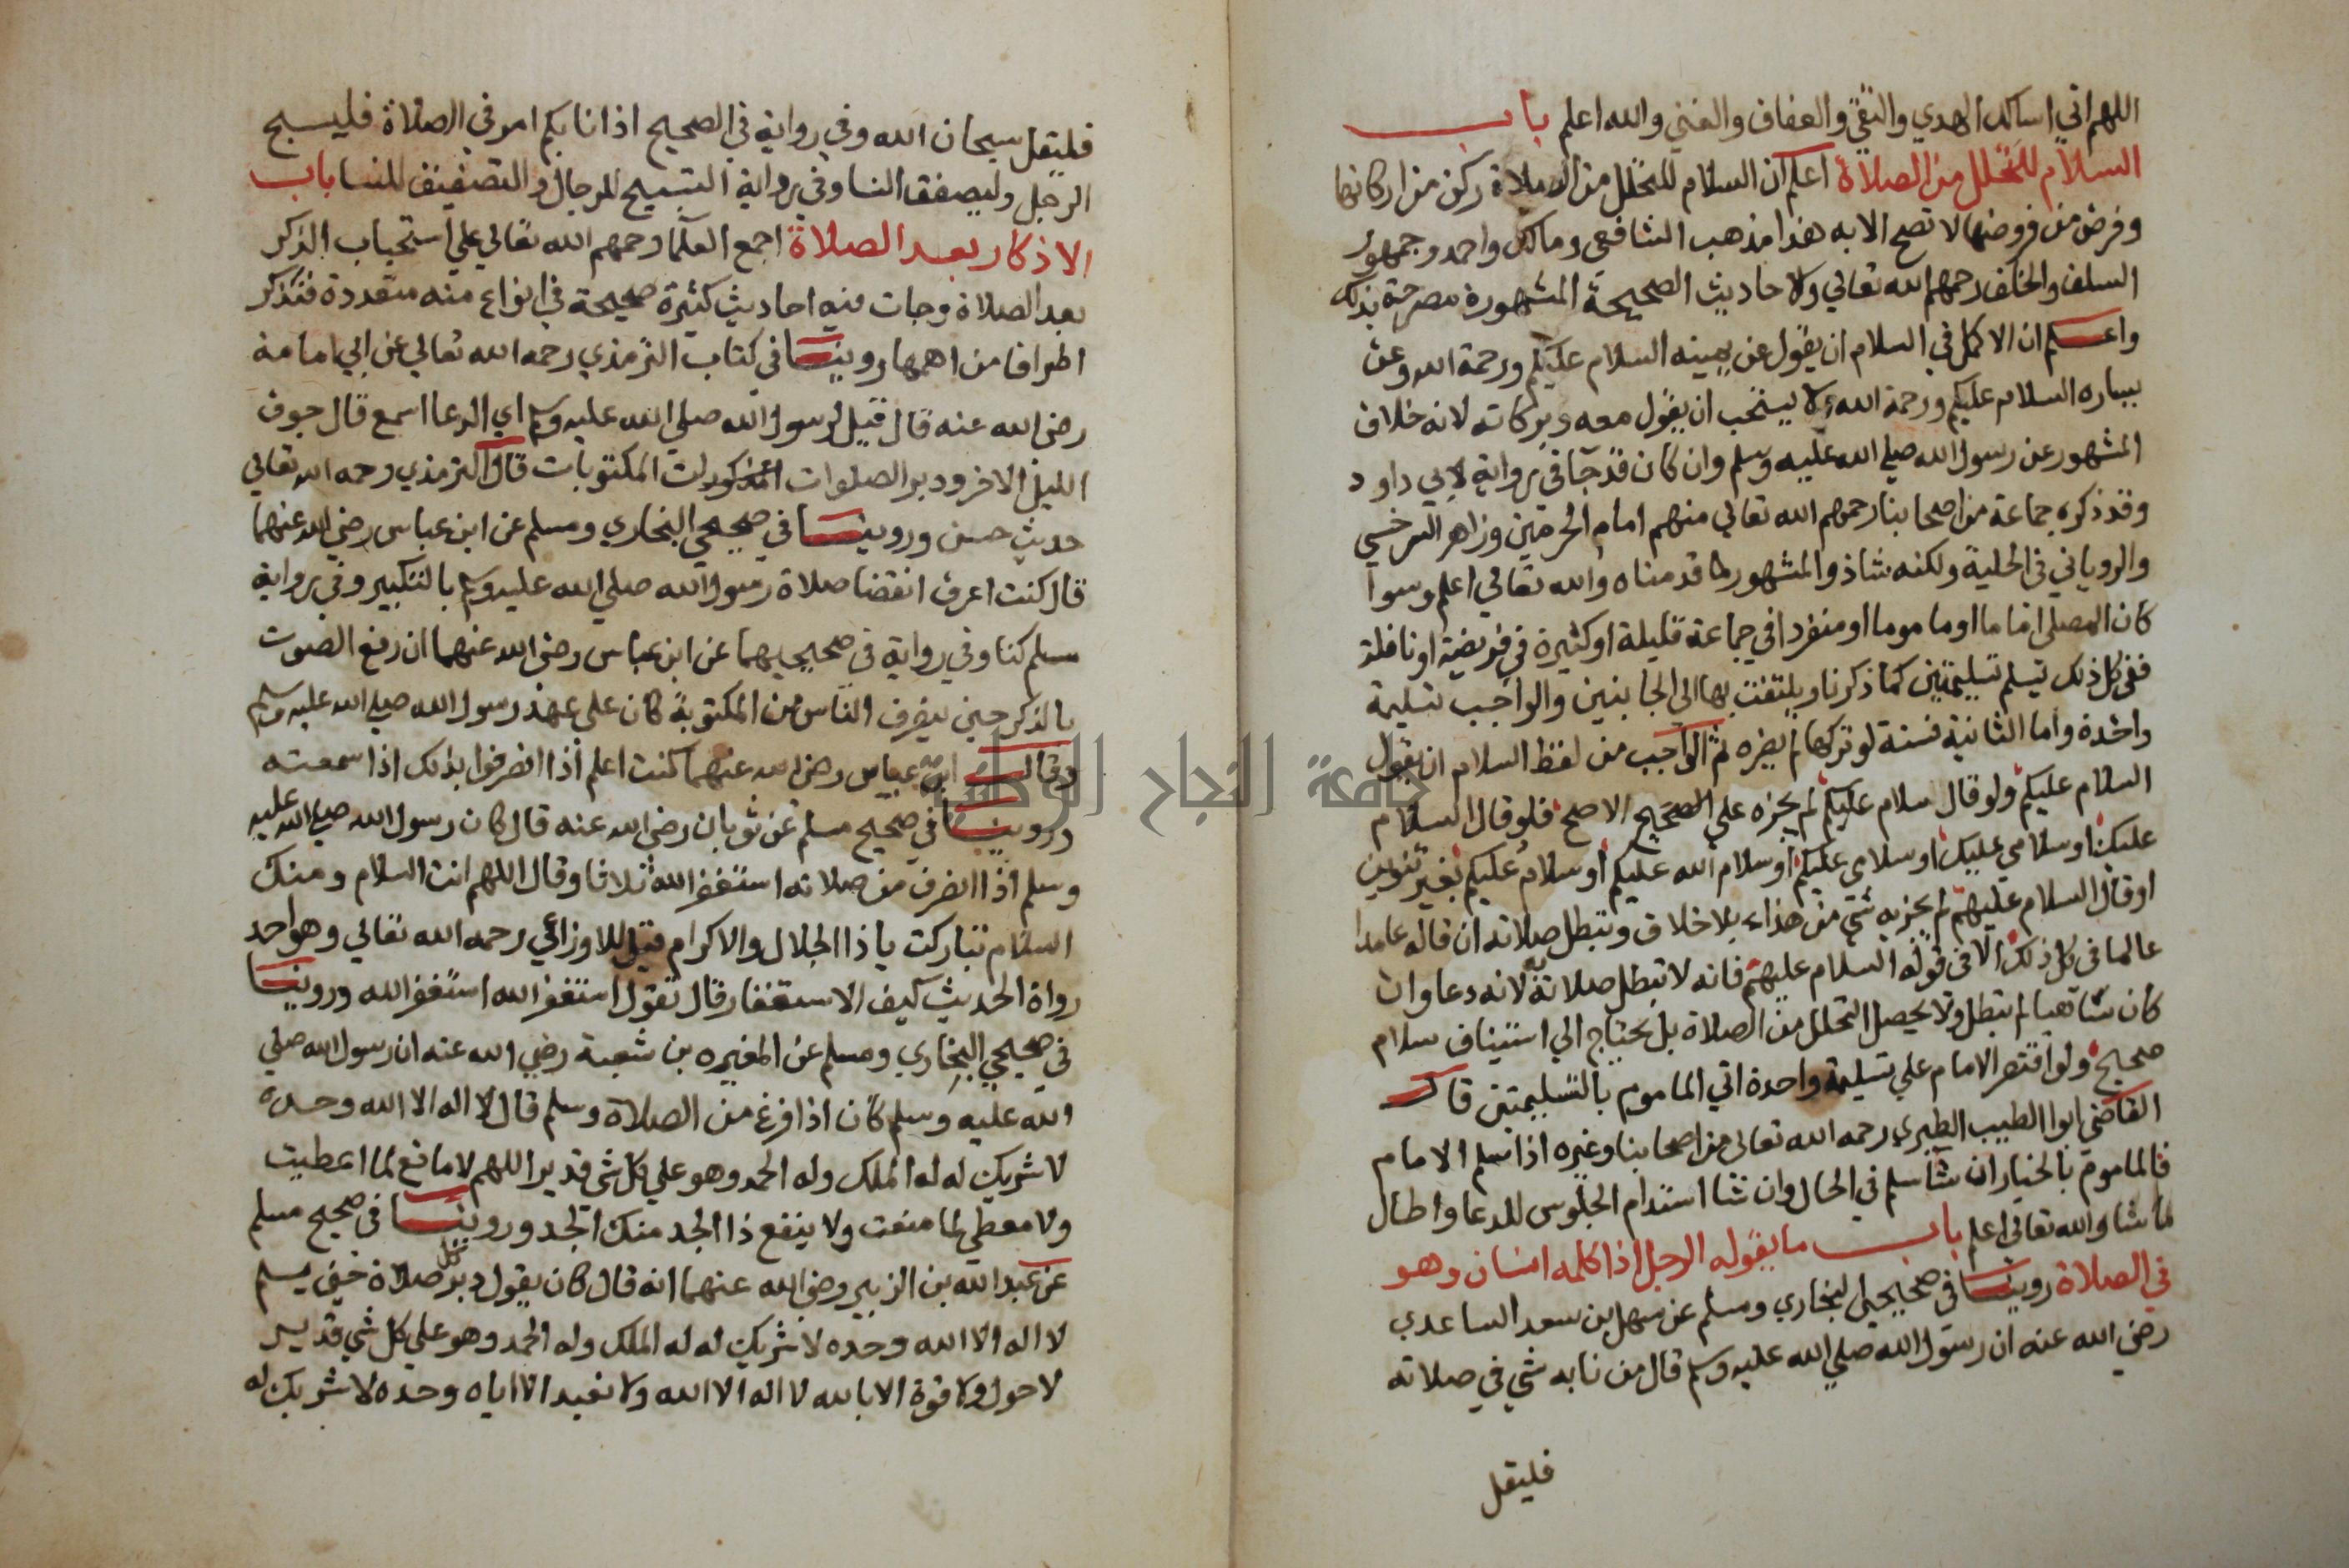 اللهم اني اسالك الهدي والتقي والعفاف والغني والله اعلم باب
السلام للتحلل من الصلاة اعلم ان السلام للتحلل من الصلاة ركن من اركانها
وفرض من فروضها لا تصح الا به هذا مذهب الشافعي ومالك واحمد وجمهور
السلف والخلف رحمهم الله تعالي والاحاديث الصحيحة المشهورة مصرحة بذلك
واعلم ان الاكمل في السلام ان يقول عن يمينه السلام عليكم ورحمة الله وعن
يساره السلام عليكم ورحمة الله ولا يستحب ان يقول معه وبركاته لانه خلاف
المشهور عن رسول الله صلي الله عليه وسلم وان كان قد جآ في رواية لابي داود
وقد ذكره جماعة من اصحابنا رحمهم الله تعالي منهم امام الحرمين وزاهر السرخسي
والروياني في الحلية ولكنه شاذ والمشهور ما قدمناه والله تعالي اعلم وسوا
كان المصلي اماما او ماموما او منفردا في جماعة قليلة او كثيرة في فريضة او نافلة
ففي كل ذلك يسلم تسليمتين كما ذكرنا ويلتفت بها الي الجانبين والواجب تسليمة
واحدة واما الثانية فسنة لو تركها لم يضره ثم الواجب من لفظ السلام ان يقول
السلام عليكم ولو قال سلام عليكم لم يجزه علي الصحيح الاصح فلو قال السلام
عليك او سلامي عليك او سلامي عليكم او سلام الله عليكم او سلام عليكم بغير تنوين
او قال السلام عليهم لم يجزيه شي من هذاء بلا خلاف وتبطل صلاته ان قاله عامدا
عالما في كل ذلك الا في قوله السلام عليهم فانه لا تبطل صلاته به لانه دعا وان
كان ساهيا لم تبطل ولا يحصل التحلل من الصلاة بل يحتاج الي استيناف سلام
صحيح ولو اقتصر الامام علي تسليمة واحدة اتي الماموم بالتسليمتين قال
القاضي ابوا الطيب الطبري رحمه الله تعالي من اصحابنا وغيره اذا سلم الامام
فالماموم بالخيار ان شا سلم في الحال وان شا استدام الجلوس للدعا واطال
ما شا والله تعالي اعلم باب ما يقوله الرجل اذا كلمه انسان وهو
في الصلاة روينا في صحيحي البخاري ومسلم عن سهل بن سعد الساعدي
رضي الله عنه ان رسول الله صلي الله عليه وسلم قال من نابه شي في صلاته
فليقل
فليقل سبحان الله وفي رواية في الصحيح اذا نابكم امر في الصلاة فليسبح
الرجل وليصفق النسا وفي رواية التسبيح للرجال والتصفيف للنسا باب
الاذكار بعد الصلاة اجمع العلما رحمهم الله تعالي علي استحباب الذكر
بعد الصلاة وجات فيه احاديث كثيرة صحيحة في انواع منه متعددة فنذكر
اطرافا من اهمها روينا في كتاب الترمذي رحمه الله تعالي عن ابي امامة
رضي الله عنه قال قيل لرسول الله صلي الله عليه وسلم اي الدعا اسمع قال جوف
الليل الاخر ودبر الصلوات المكتوبات قال الترمذي رحمه الله تعالي
حديث حسن وروينا في صحيحي البخاري ومسلم عن ابن عباس رضي الله عنهما
قال كنت اعرف انقضا صلاة رسول الله صلي الله عليه وسلم بالتكبير وفي رواية
مسلم كنا وفي رواية في صحيحيهما عن ابن عباس رضي الله عنهما ان رفع الصوت
بالذكر حين ينصرف الناس من المكتوبة كان علي عهد رسول الله صلي الله عليه وسلم
وقال ابن عباس رضي الله عنهما كنت اعلم اذا انصرفوا بذلك اذا سمعته
وروينا في صحيح مسلم عن ثوبان رضي الله عنه قال كان رسول الله صلي الله عليه
وسلم اذا انصرف من صلاته استغفر الله ثلاثا وقال اللهم انت السلام ومنك
السلام تباركت ياذا الجلال والاكرام قيل للاوزاعي رحمه الله تعالي وهو احد
رواة الحديث كيف الاستغفار قال تقول استغفر الله استغفر الله وروينا
في صحيحي البخاري ومسلم عن المغيره بن شعبة رضي الله عنه ان رسول الله صلي
الله عليه وسلم كان اذا فرغ من الصلاة وسلم قال لا اله الا الله وحده
لا شريك له له الملك وله الحمد وهو علي كل شي قدير اللهم لا مانع لما اعطيت
ولا معطي لما منعت ولا ينفع ذا الجد منك الجد وروينا في صحيح مسلم
عن عبد الله بن الزبير رضي الله عنهما انه قال كان يقول دبر كل صلاة حين يسلم
لا اله الا الله وحده لا شريك له له الملك وله الحمد وهو علي كل شي قدير
لا حول ولا قوة الا بالله لا اله الا الله ولا نعبد الا اياه وحده لا شريك له
جامعة النجاح الوطنية